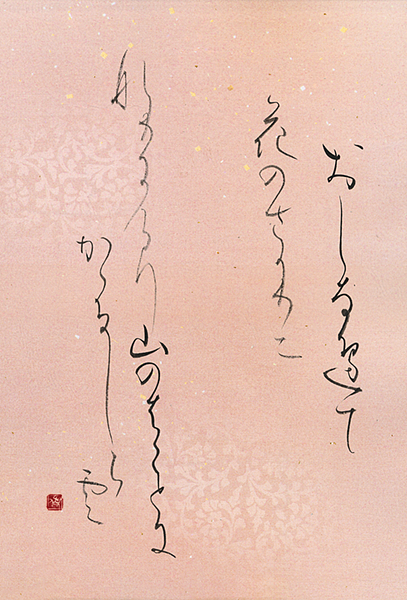 おしなへて
花のさかりに
なりにけり山のはことに
かゝるしら雲